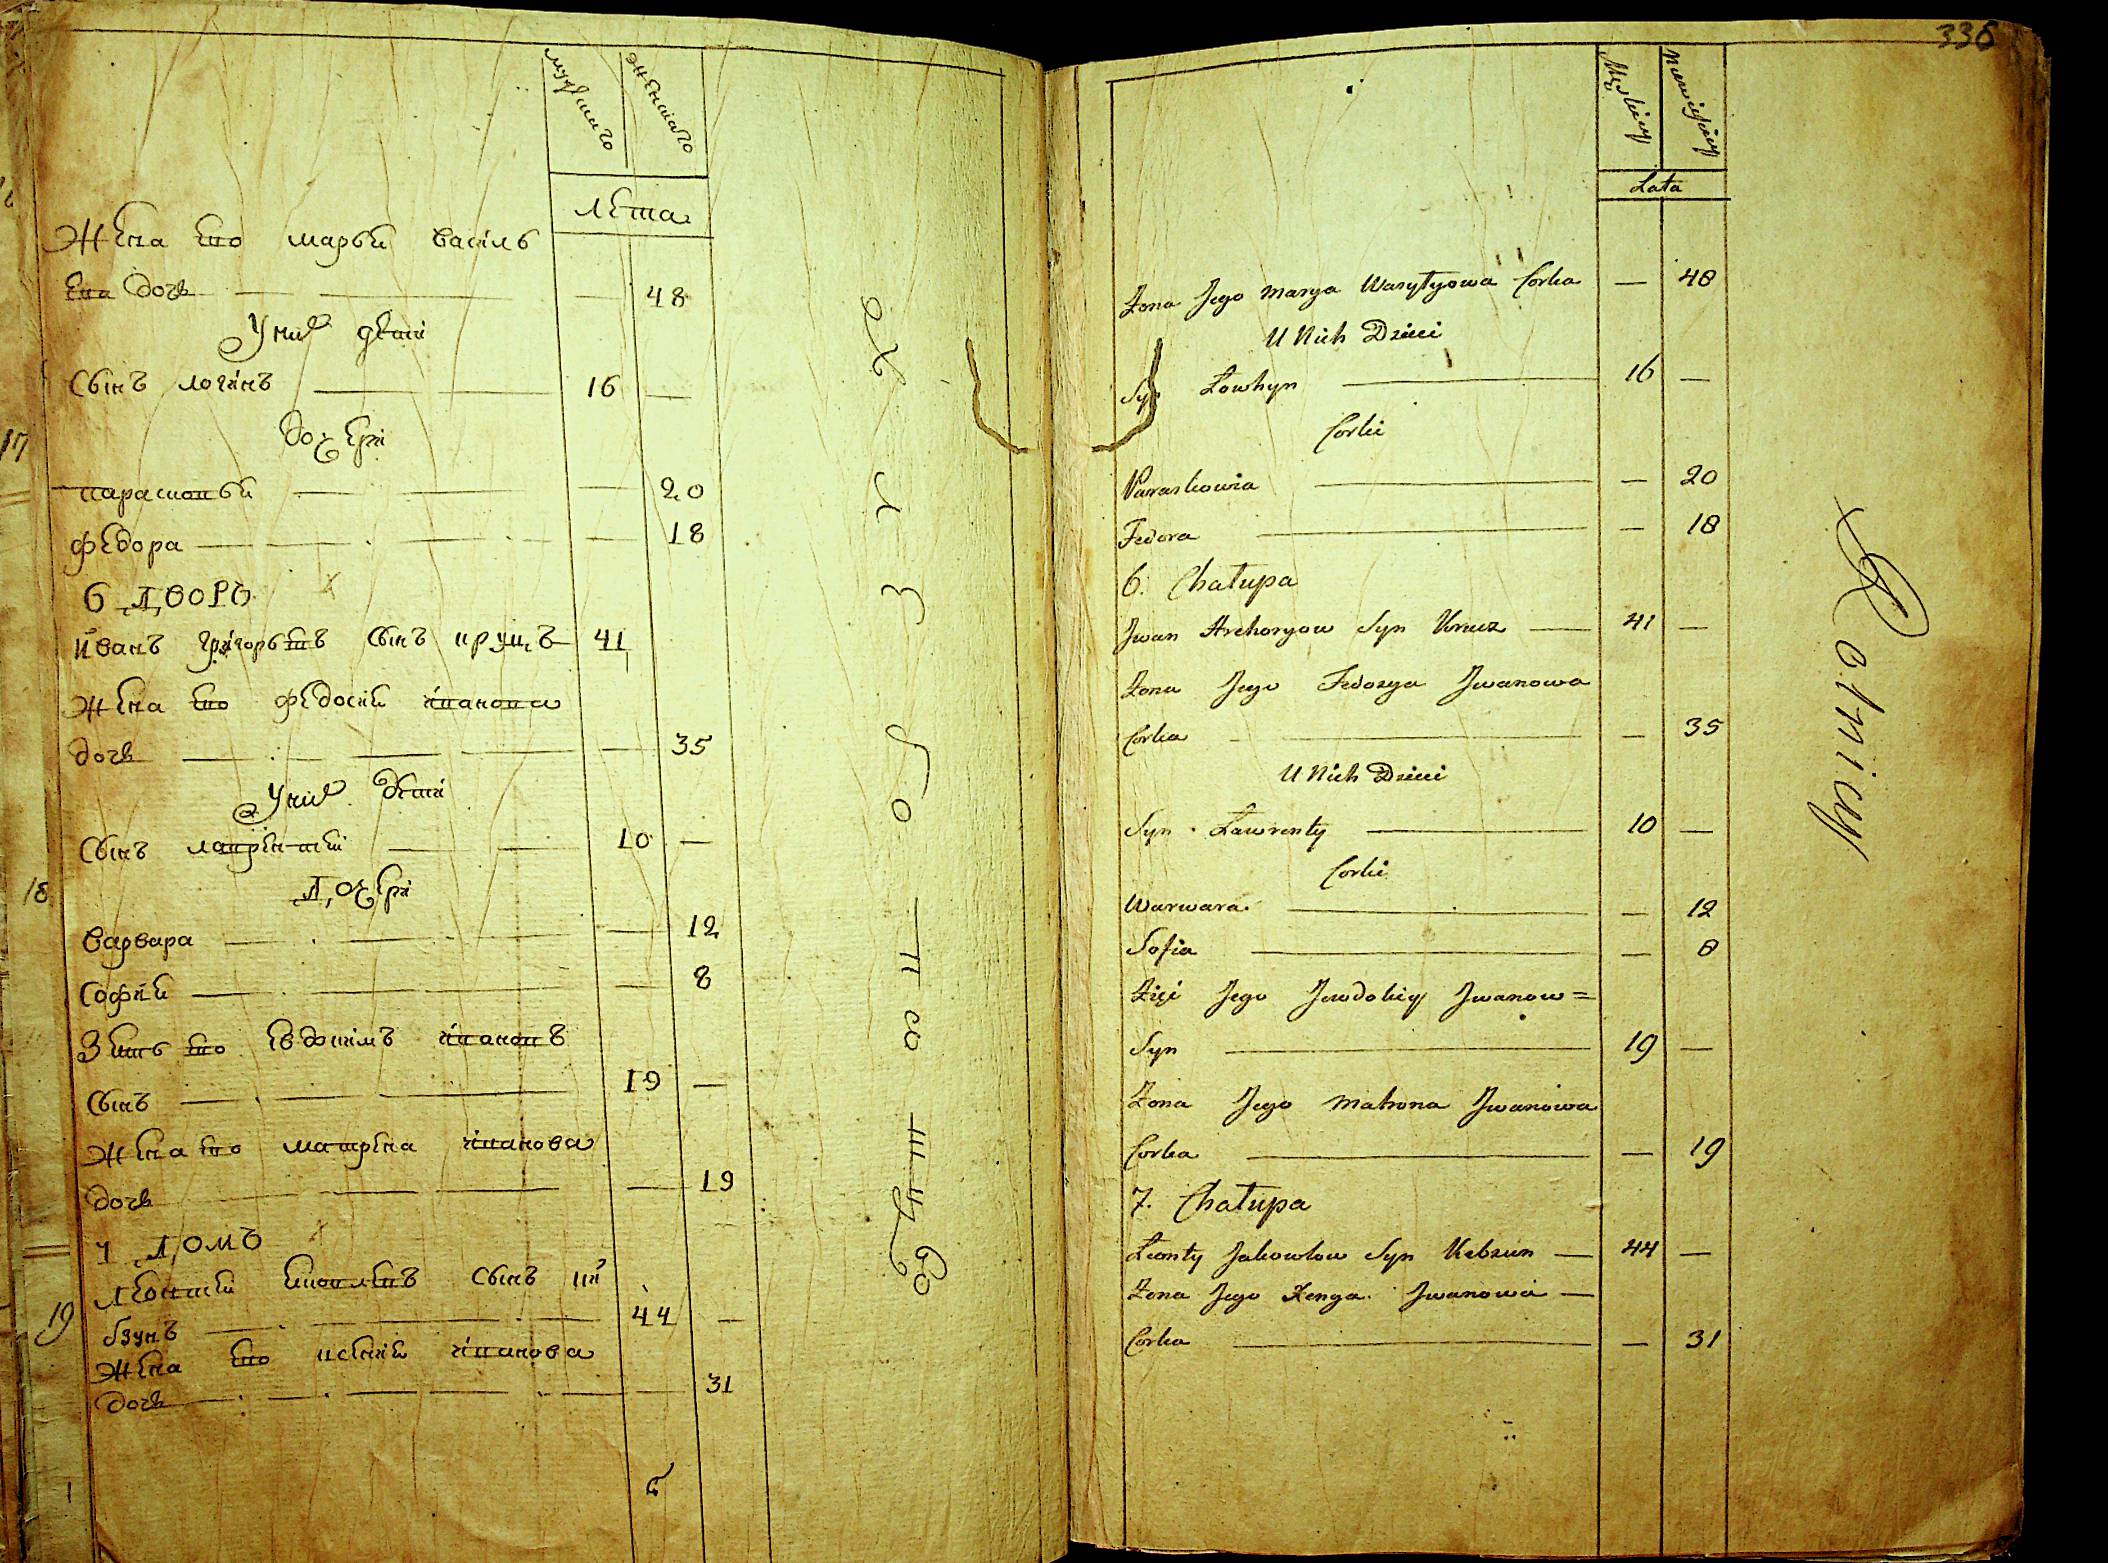 мужска͠го
женска͠го
Лѣта
Жена Его марья василь
Ева дочь — 48
У них дети
Сынъ логинъ — 16 —
дочери
парасковья — 20
федора — 18
6 ДВОРЪ
иванъ григорьевъ сынъ круцъ 41
жена Его федосия иванова
дочь — 35
У них дети
Сынъ лаврентий — 10 —
Дочери
варвара — 12
София — 8
Зять Его Евдокимъ ивановъ
Сынъ — 19 —
Жена Его матрена иванова
дочь — 19
7 ДОМЪ
Леонтий яковлевъ сынъ ки
бзунъ — 44 —
Жена Его ксения иванова
дочь — 31
17
18
19
338
Męskiey
Niewieściey
Lata
Żona Jego Marya Wasylyowa Corka — 48
U Nich Dzieci
Syn Łowhyn — 16 —
Corki
Paraskowia — 20
Fedora — 18
6. Chałupa
Jwan Hrehoryow Syn Krucz — 41 —
Żona Jego Fedosya Jwanowa
Corka — 35
U Nich Dzieci
Syn Ławrenty — 10 —
Corki
Warwara — 12
Sofia — 8
Zięć Jego Jewdokiy Jwanow=
Syn — 19 —
Żona Jego Matrona Jwanowa
Corka — 19
7. Chałupa
Leonty Jakowlow Syn Kebzun — 44 —
Żona Jego Xenya Jwanowa —
Corka — 31
Rolnicy